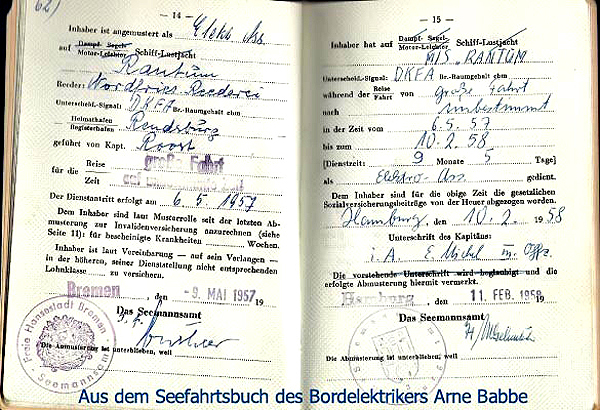 62)
— 14 —
Inhaber ist angemustert als Elektr. Ass.
auf Dampf- Segel- Motor-Leichter Schiff-Lustjacht
Rantum
Reeder: Nordfries. Reederei
Unterscheid.-Signal: DKFA Br.-Raumgehalt cbm
Heimathafen
Registerhafen Rendsburg
geführt von Kapt. Roost
für die Reise große Fahrt
Zeit
Der Dienstantritt erfolgt am 6. 5. 1957
Dem Inhaber sind laut Musterrolle seit der letzten Ab-
musterung zur Invalidenversicherung anzurechnen (siehe
Seite 11): für bescheinigte Krankheiten Wochen.
Inhaber ist laut Vereinbarung — auf sein Verlangen —
in der höheren, seiner Dienststellung nicht entsprechenden
Lohnklasse zu versichern.
Bremen, den - 9. MAI 1957 19
Das Seemannsamt
Die Abmusterung ist unterblieben, weil
Freie Hansestadt Bremen
Seemannsamt
— 15 —
Inhaber hat auf Dampf- Segel- Motor-Leichter Schiff-Lustjacht
M/S "RANTUM"
Unterscheid.-Signal: DKFA Br.-Raumgehalt cbm
während der Reise Fahrt von große Fahrt
nach unbestimmt
in der Zeit vom 6. 5. 57
bis zum 10. 2. 58
[Dienstzeit: 9 Monate 5 Tage]
als Elektro-Ass. gedient.
Dem Inhaber sind für die obige Zeit die gesetzlichen
Sozialversicherungsbeiträge von der Heuer abgezogen worden.
Hamburg, den 10. 2. 1958
Unterschrift des Kapitäns:
i. A. E. Michel III. Offz.
Die vorstehende Unterschrift wird beglaubigt und die
erfolgte Abmusterung hiermit vermerkt.
Hamburg, den 11. FEB. 1958 19
Das Seemannsamt
Die Abmusterung ist unterblieben, weil
Aus dem Seefahrtsbuch des Bordelektrikers Arne Babbe